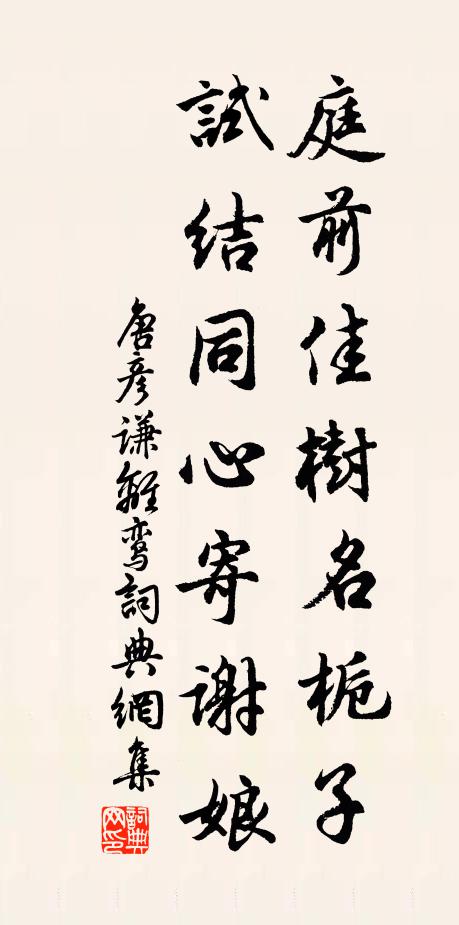 庭前佳樹名梔子
試結同心寄謝娘
唐彦謙離鸞詞典網集
詞典网印